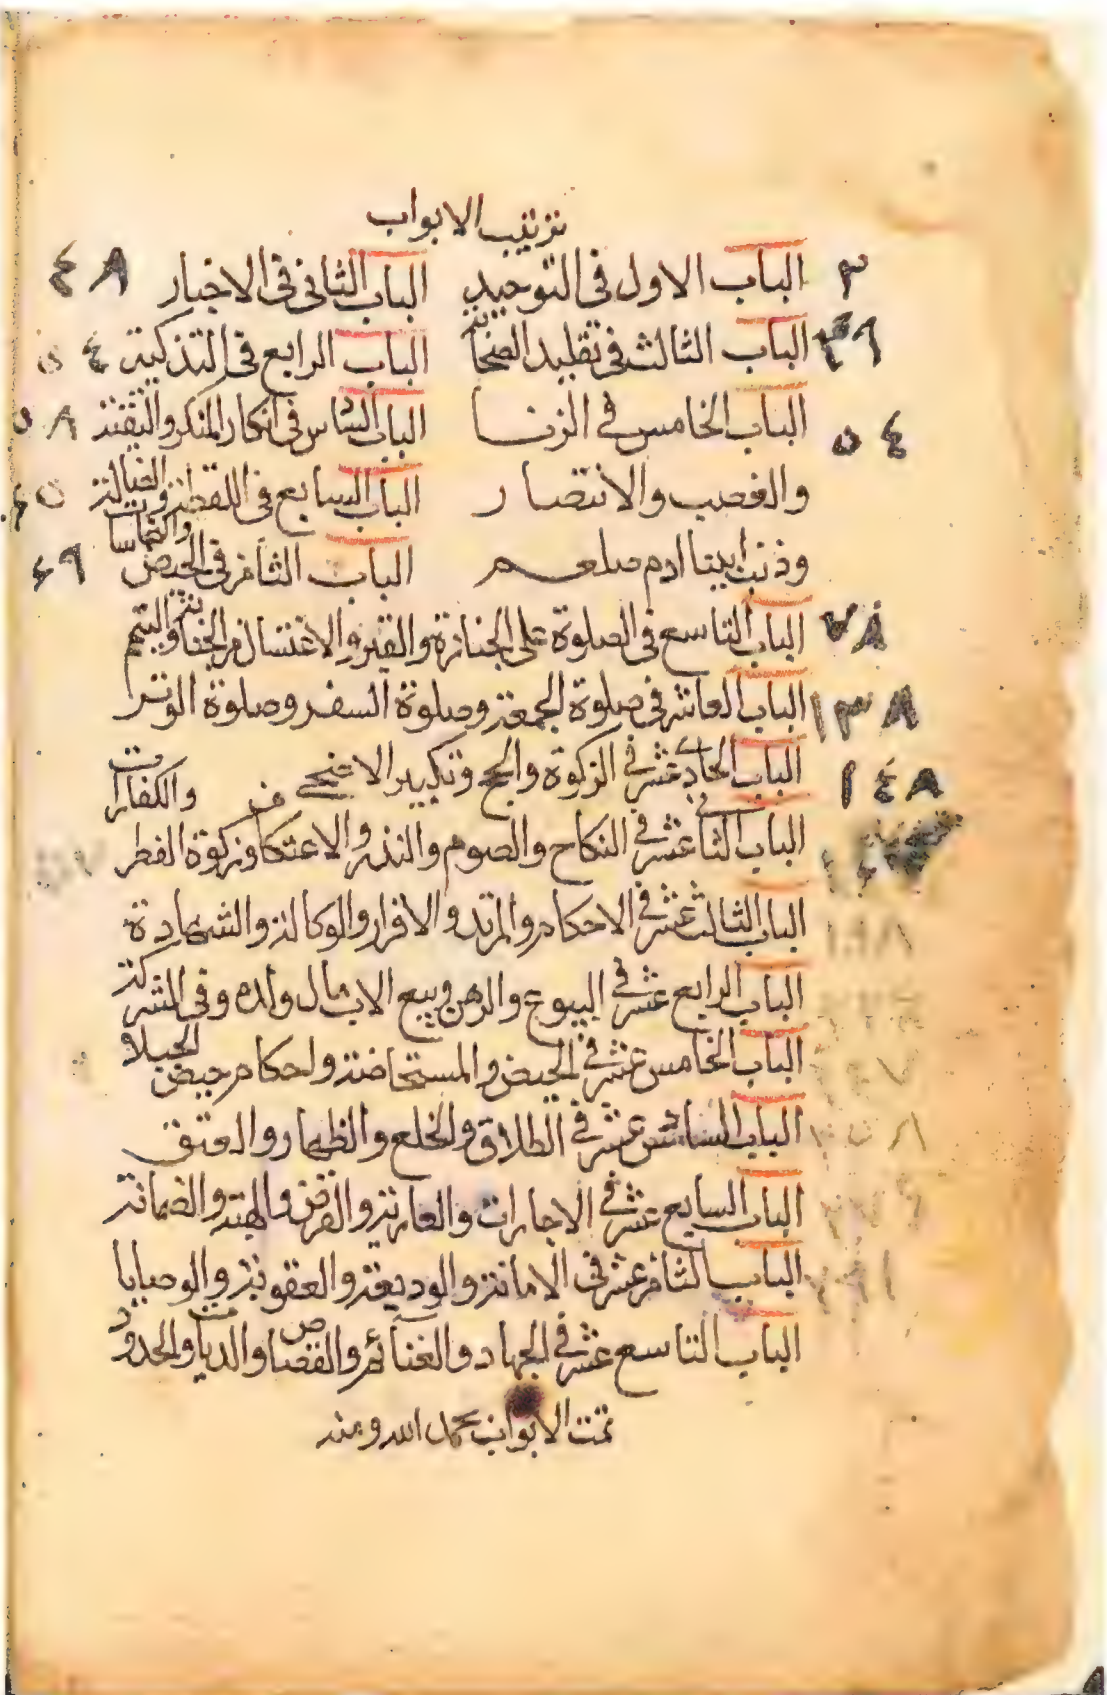 ترتيب الابواب
٣ الباب الاول في التوحيد الباب الثاني في الاخبار ٤٨
الباب الثالث في تقليد الصحابة الباب الرابع في التذكية ٥٤
٥٤ الباب الخامس في الزنا الباب السادس في انكار المنكر والتقية ٥٨
والغصب والانتصار الباب السابع في اللقطة والضالة
وذنب ابينا ادم صلعم الباب الثامن في الحيض ٦٩
٧٨ الباب التاسع في الصلوة على الجنازة والقبر والاغتسال من الجنابة والتيمم
١٣٨ الباب العاشر في صلوة الجمعة وصلوة السفر وصلوة الوتر
١٤٨ الباب الحادي عشر في الزكوة والحج وتكبير الاضحى والكفارات
الباب الثاني عشر في النكاح والصوم والنذر والاعتكاف وزكوة الفطر
الباب الثالث عشر في الاحكام والمرتد والاقرار والوكالة والشهادة
الباب الرابع عشر في البيوع والرهن وبيع الاب مال ولده وفي الشركة
الباب الخامس عشر في الحيض والمستحاضة واحكام حيض الحبلا
الباب السادس عشر في الطلاق والخلع والظهار والعتق
الباب السابع عشر في الاجارات والعارية والقرض والهبة والضمانة
الباب الثامن عشر في الامانة والوديعة والعقوبة والوصايا
الباب التاسع عشر في الجهاد والغنائم والقصاص والديات والحدود
تمت الابواب بحمد الله ومنه